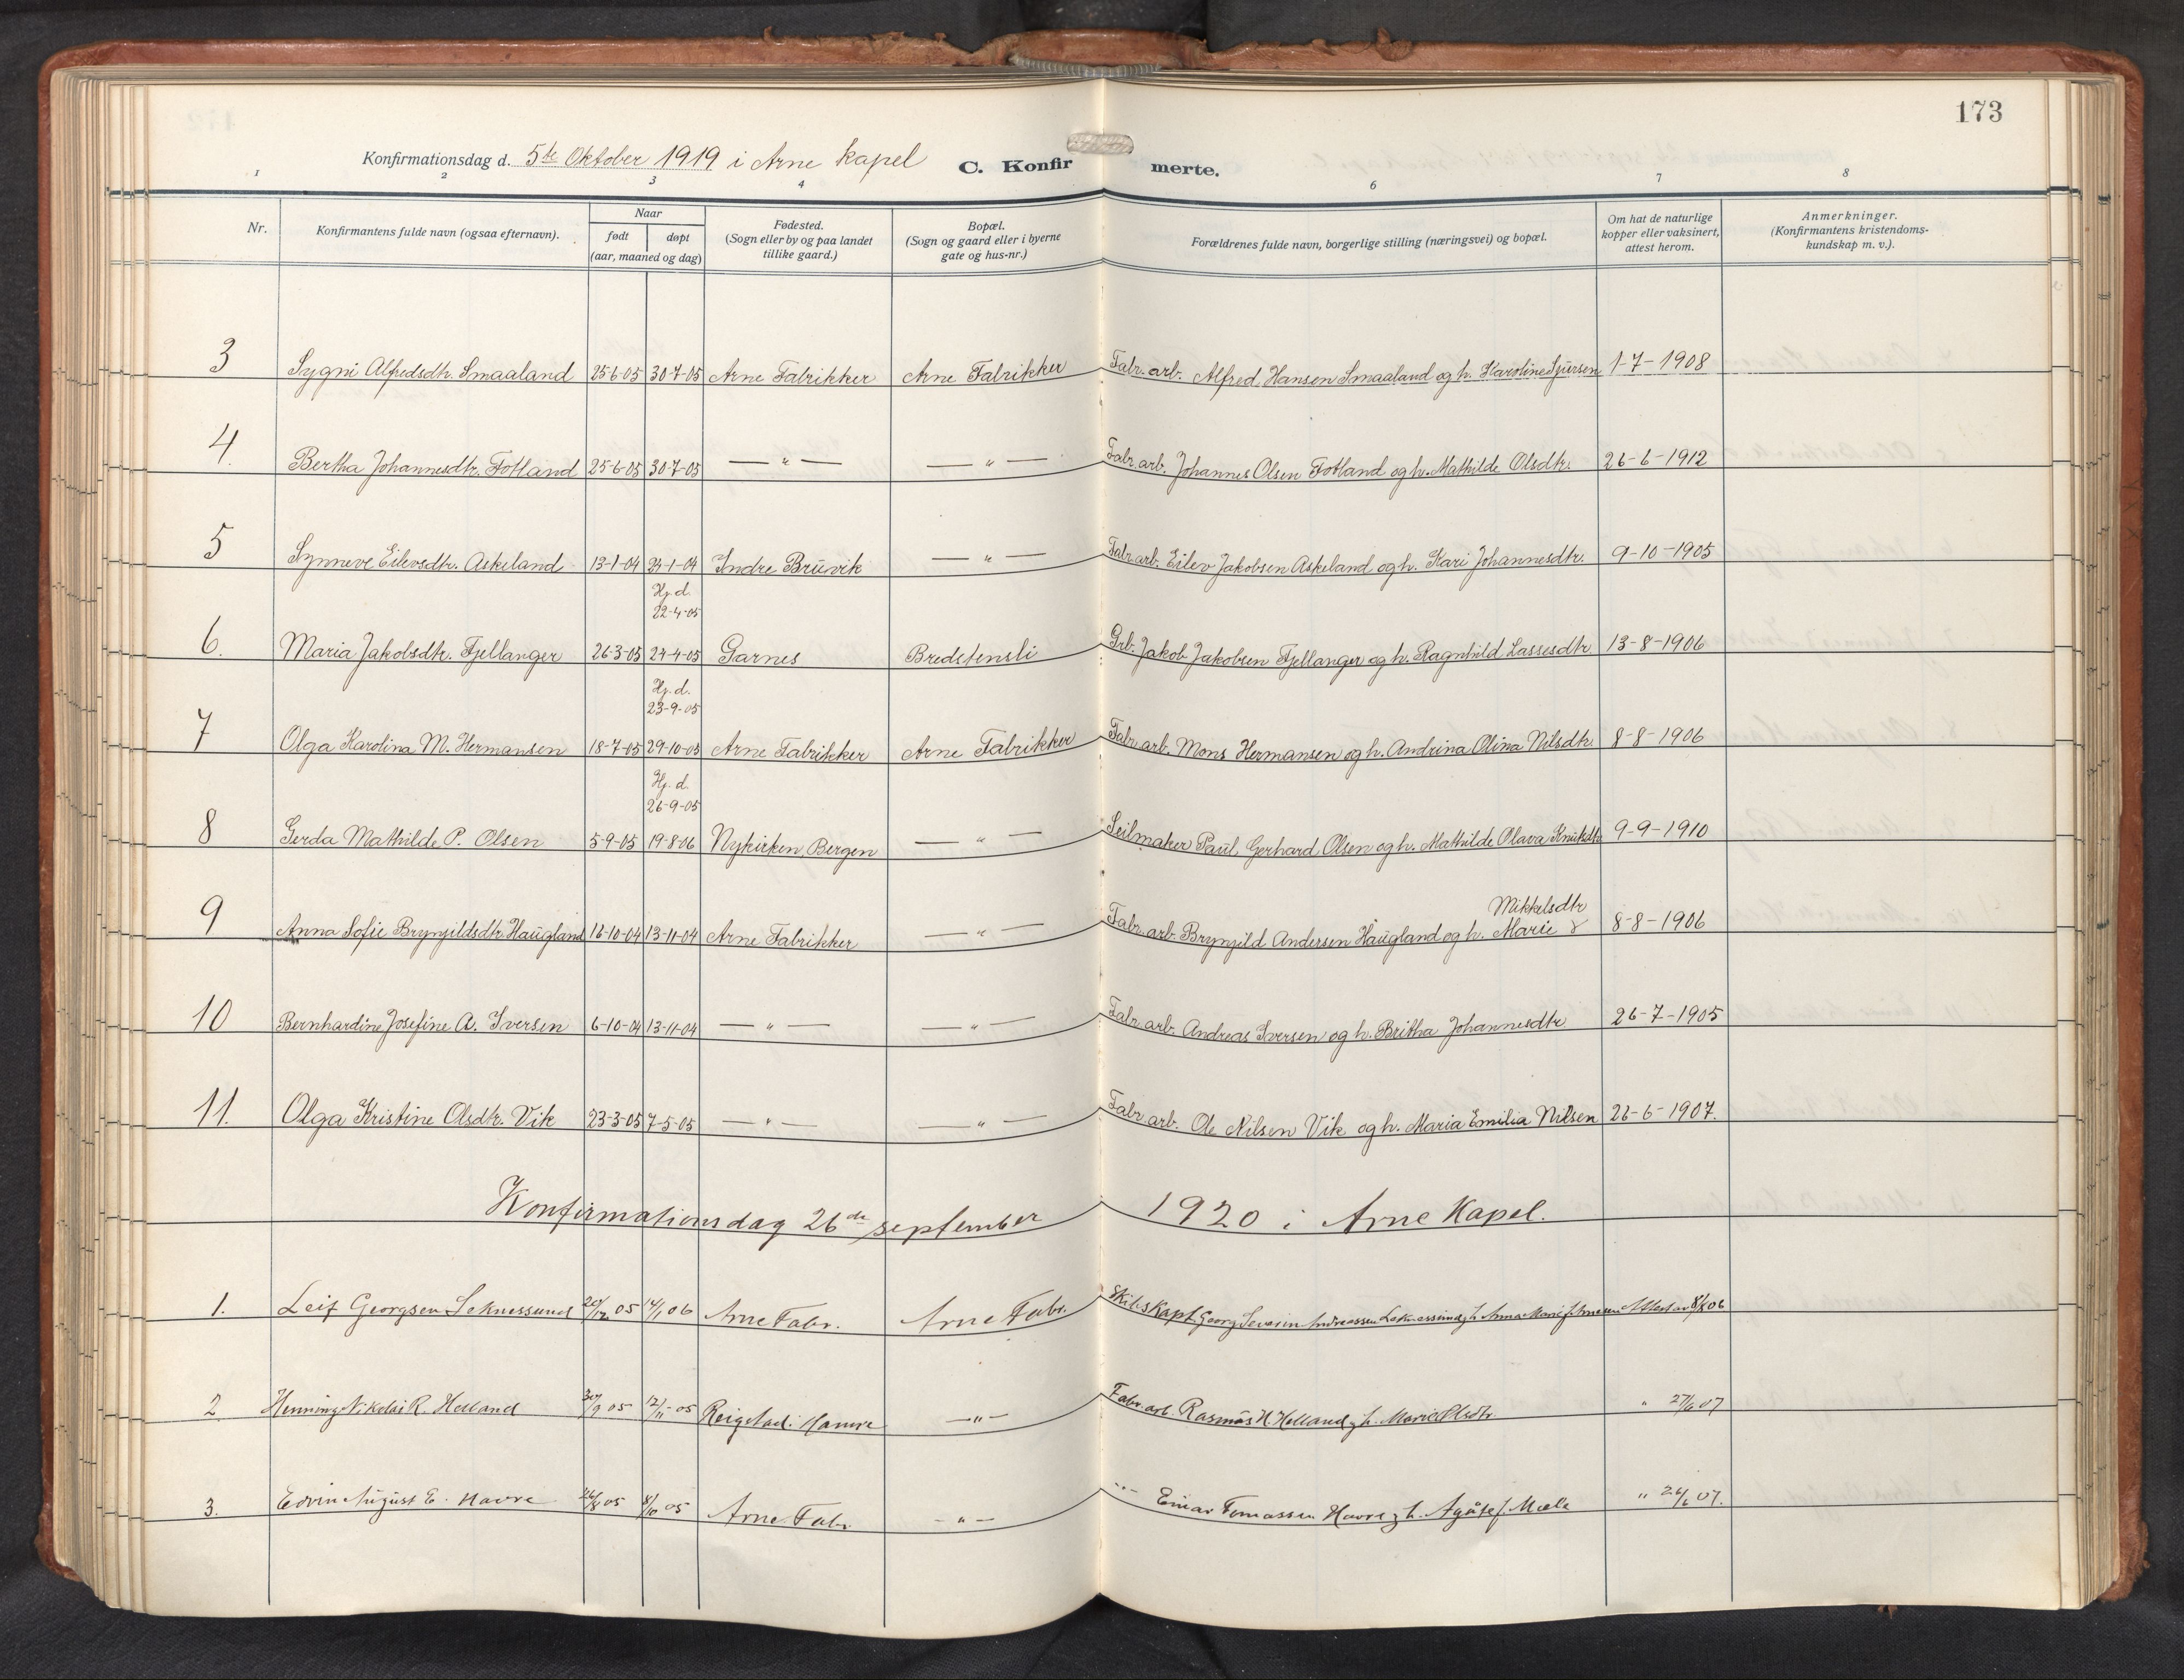 173
Konfirmationsdag d. 5te Oktober 1919 i Arne kapel C. Konfirmerte.
1 2 3 4 6 7 8
Nr. Konfirmantens fulde navn (ogsaa efternavn). Naar født døpt (aar, maaned og dag) Fødested. (Sogn eller by og paa landet tillike gaard.) Bopæl. (Sogn og gaard eller i byerne gate og hus-nr.) Forældrenes fulde navn, borgerlige stilling (næringsvei) og bopæl. Om hat de naturlige kopper eller vaksinert, attest herom. Anmerkninger. (Konfirmantens kristendomskundskap m. v.).
3 Sygni Alfredsdtr. Smaaland 25-6-05 30-7-05 Arne Fabrikker Arne Fabrikker Fabr. arb. Alfred Hansen Smaaland og h. Karoline Sjursen 1-7-1908
4. Bertha Johannesdtr. Fotland 25-6-05 30-7-05 — " — — " — Fabr. arb. Johannes Olsen Fotland og h. Mathilde Olsdtr. 26-6-1912
5 Synneve Eilevsdtr. Askeland 13-1-04 24-1-04 Indre Brüvik — " — Fabr. arb. Eilev Jakobsen Askeland og h. Kari Johannesdtr. 9-10-1905
Hj. d.
22-4-05
6. Maria Jakobsdtr. Fjellanger 26-3-05 24-4-05 Garnes Bredstensli Grb. Jakob Jakobsen Fjellanger og h. Ragnhild Lassesdtr. 13-8-1906
Hj. d.
23-9-05
7 Olga Karolina M. Hermansen 18-7-05 29-10-05 Arne Fabrikker Arne Fabrikker Fabr. arb. Mons Hermansen og h. Andrina Olina Nilsdtr. 8-8-1906
Hj. d.
26-9-05
8 Gerda Mathilde P. Olsen 5-9-05 19-8-06 Nykirken, Bergen — " — Seilmaker Paul Gerhard Olsen og h. Mathilde Olava Knutsdtr. 9-9-1910
Mikkelsdtr
9 Anna Sofie Brynjildsdtr. Haugland 16-10-04 13-11-04 Arne Fabrikker — " — Fabr. arb. Brynjild Andersen Haugland og h. Marie 8-8-1906
10 Bernhardine Josefine A. Iversen 6-10-04 13-11-04 — " — — " — Fabr. arb. Andreas Iversen og h. Britha Johannesdtr 26-7-1905
11. Olga Kristine Olsdtr. Vik 23-3-05 7-5-05 — " — — " — Fabr. arb. Ole Nilsen Vik og h. Maria Emilia Nilsen 26-6-1907.
Konfirmationsdag 26de september 1920 i Arne Kapel.
1. Leif Georgsen Leknessund 05 14/1 06 Arne Fabr. Arne Fabr. Skibskapt. Georg Severin Andreassen Leknessund h. Anna Marie Attest av 06
2. Henning Nikolai R. Helland 30/9 05 12/11-05 Reigstad i Hamre — " — Fabr. arb. Rasmus H. Helland h. Marie Olsdtr. " 27/6 07
3. Edvin August E. Havre 26/8 05 8/10 05 Arne Fabr. — " — " — Einar Tomassen Havre h. Mæle " 26/6 07.